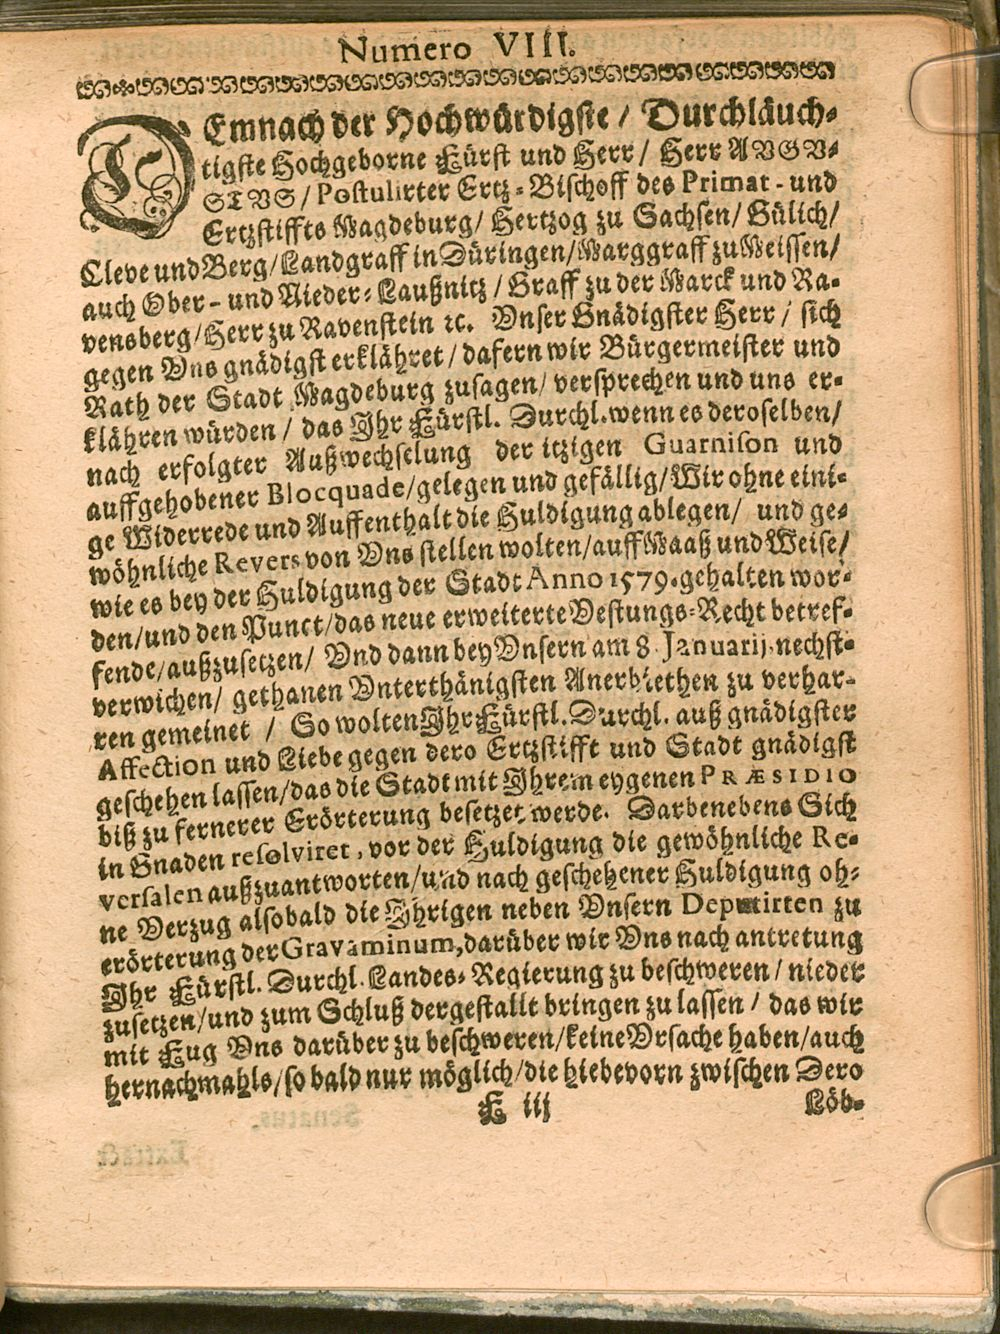 Numero VIII.
DEmnach der Hochwürdigste / Durchläuch-
tigste Hochgeborne Fürst und Herr / Herr AVGV-
STVS / Postulirter Ertz-Bischoff des Primat- und
Ertzstiffts Magdeburg / Hertzog zu Sachsen / Gülich /
Cleve und Berg / Landgraff in Düringen / Marggraff zu Meissen /
auch Ober- und Nieder-Laußnitz / Graff zu der Marck und Ra-
vensberg / Herr zu Ravenstein ꝛc. Unser Gnädigster Herr / sich
gegen Uns gnädigst erklähret / dafern wir Bürgermeister und
Rath der Stadt Magdeburg zusagen / versprechen und uns er-
klähren würden / das Ihr Fürstl. Durchl. wenn es deroselben /
nach erfolgter Außwechselung der itzigen Guarnison und
auffgehobener Blocquade / gelegen und gefällig / Wir ohne eini-
ge Widerrede und Auffenthalt die Huldigung ablegen / und ge-
wöhnliche Revers von Uns stellen wolten / auff Maaß und Weise /
wie es bey der Huldigung der Stadt Anno 1579. gehalten wor-
den / und den Punct / das neue erweiterte Vestungs-Recht betref-
fende / außzusetzen / Und dann bey Unsern am 8. Januarij. nechst-
verwichen / gethanen Unterthänigsten Anerbiethen zu verhar-
ren gemeinet / So wolten Ihr Fürstl. Durchl. auß gnädigster
Affection und Liebe gegen dero Ertzstifft und Stadt gnädigst
geschehen lassen / das die Stadt mit Ihrem eygenen PRÆSIDIO
biß zu fernerer Erörterung besetzet werde. Darbenebens Sich
in Gnaden resolviret, vor der Huldigung die gewöhnliche Re-
versalen außzuantworten / und nach geschehener Huldigung oh-
ne Verzug alsobald die Ihrigen neben Unsern Deputirten zu
erörterung der Gravaminum, darüber wir Uns nach antretung
Ihr Fürstl. Durchl. Landes-Regierung zu beschweren / nieder
zusetzen / und zum Schluß dergestallt bringen zu lassen / das wir
mit Fug Uns darüber zu beschweren / keine Ursache haben / auch
hernachmahls / so bald nur möglich / die hiebevorn zwischen Dero
E iij
Löb-